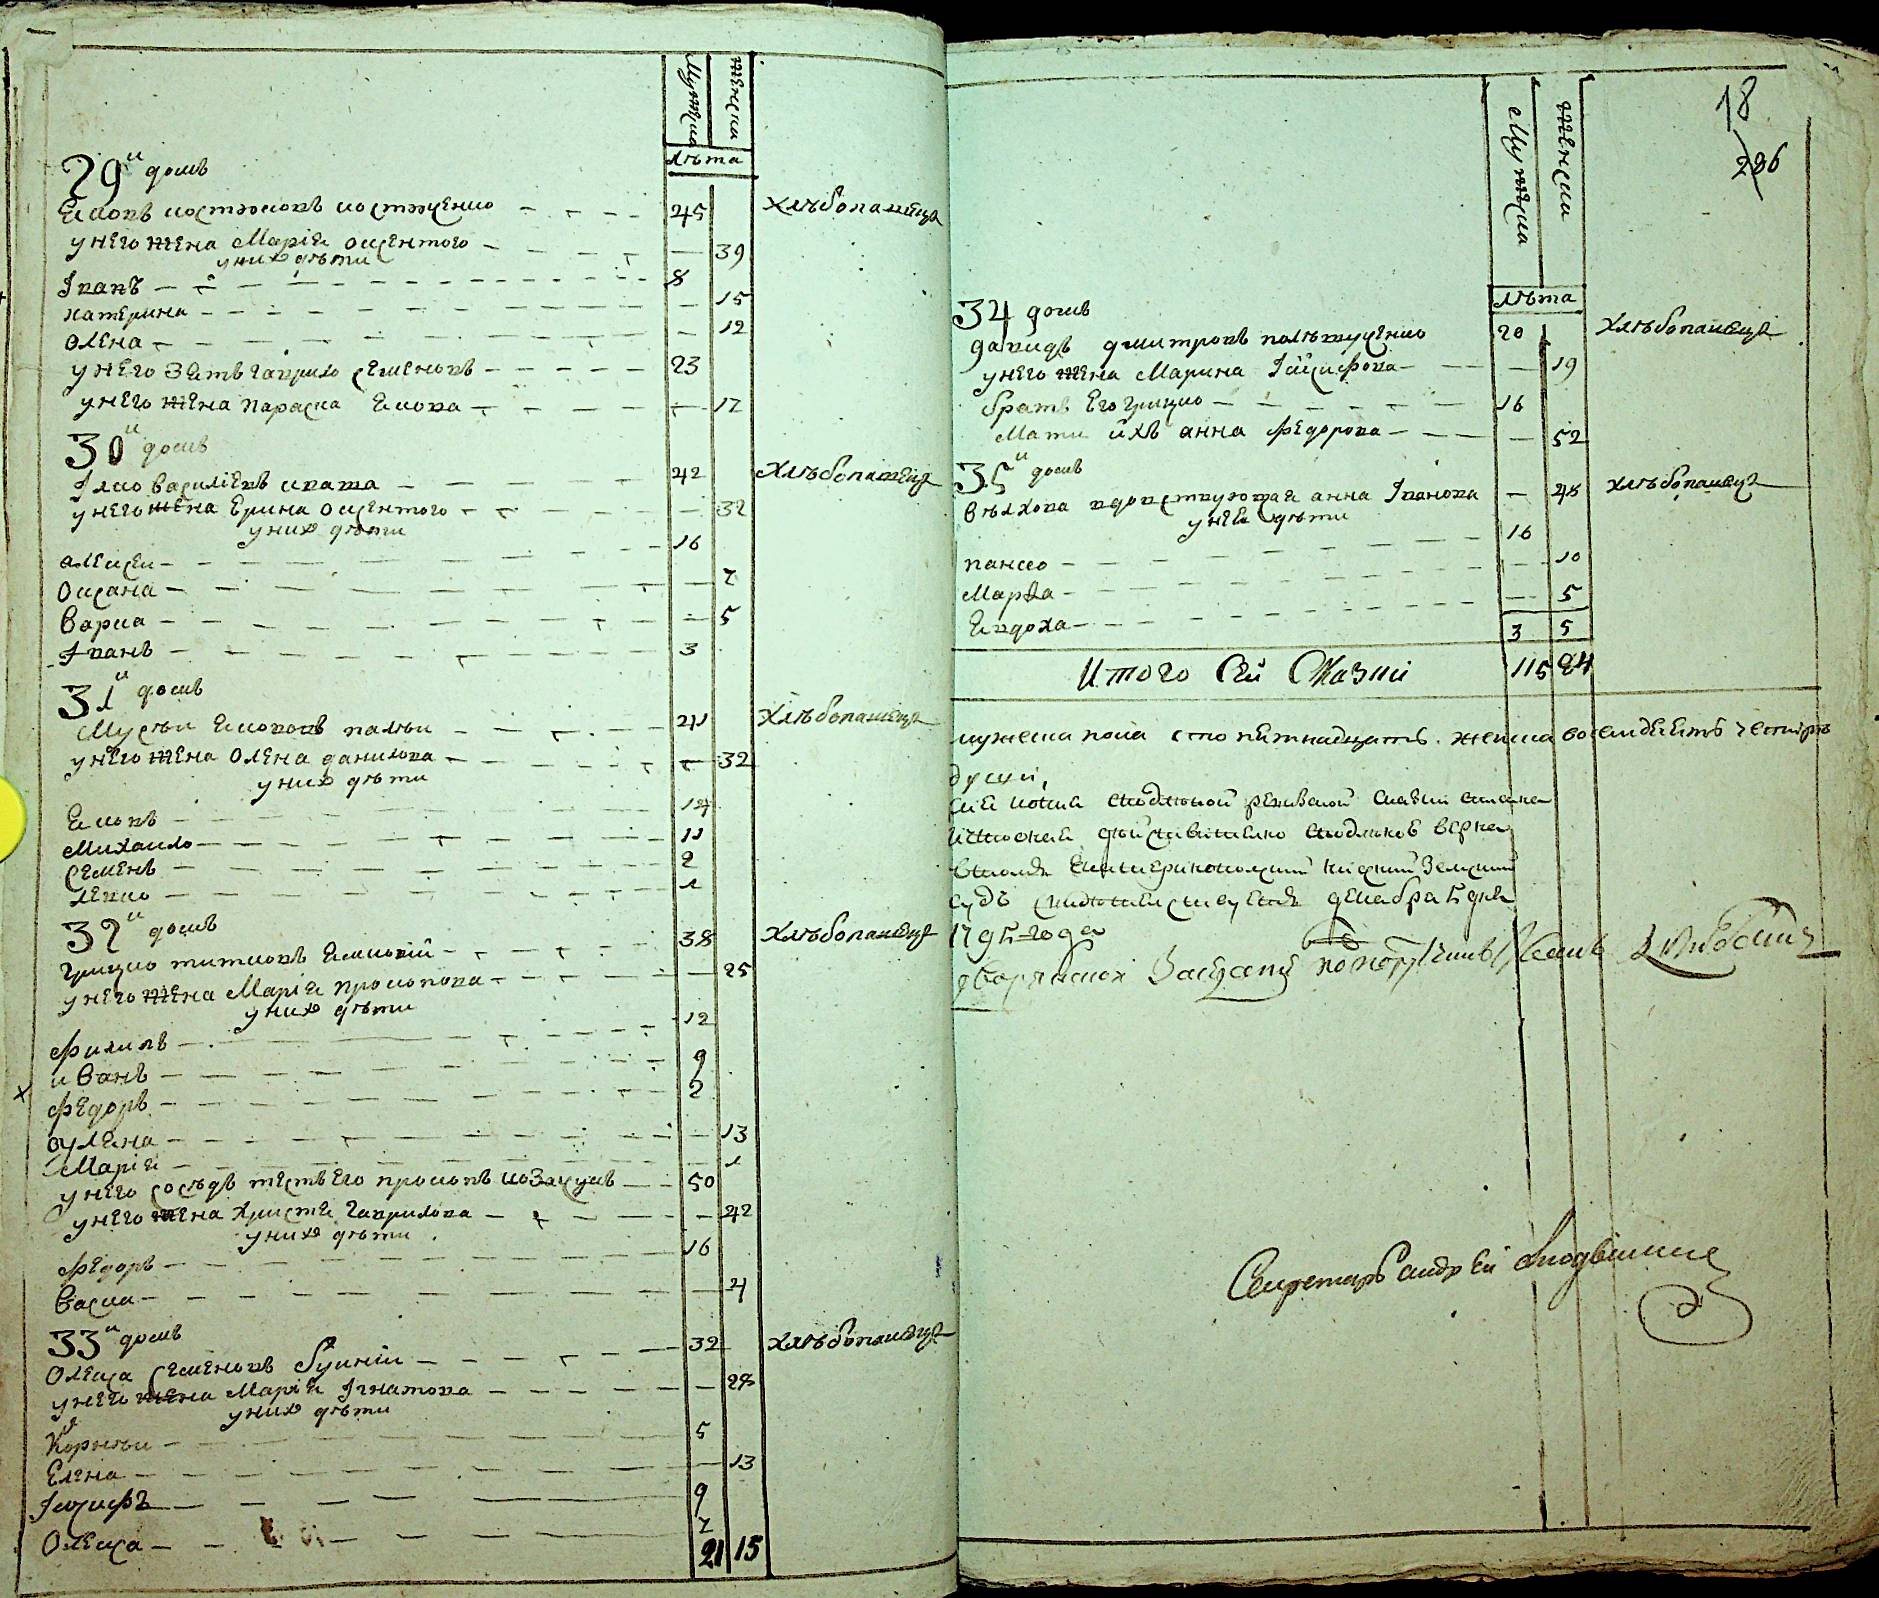 Мужска
женска
лѣта
29й домъ
Яковъ костюковъ костюченко 45 хлѣбопашецъ
унего жена Марія оксентого 39
уних дѣти
Іванъ 8
катерина 15
олена 12
унего зять гаврило семеновъ 23
унего жена параска якова 17
30й домъ
Ілко василіевъ квата 42 хлѣбопашецъ
унего жена Ерина оксентого 32
уних дѣти
алексеи 16
оксана 7
варка 5
Іванъ 3
31й домъ
Мусѣи яковов палѣи 41 хлѣбопашецъ
унего жена олена данилова 32
уних дѣти
яковъ 14
михаило 11
семенъ 2
левко 1
32й домъ
грицко титковъ 38 хлѣбопашецъ
унего жена Марія прокопова 25
уних дѣти
филипъ 12
иванъ 9
федоръ 2
вуляна 13
Марія 1
унего сосѣдъ тесть его прокопъ 50
унего жена христя гаврилова 42
уних дѣти
федоръ 16
васка 4
33й домъ
олекса семеновъ 32 хлѣбопашецъ
унего жена Марія Ігнатова 28
уних дѣти
корнѣи 5
Елена 13
Іосифъ 9
Олекса 7
21 15
18
286
Мужска
женска
лѣта
34 домъ
давидъ дмитровъ 20 хлѣбопашецъ
унего жена Марина Іосифова 19
братъ его грицко 16
Мати ихъ анна федорова 52
35й домъ
вдовствующая анна Іванова 48 хлѣбопашецъ
унея дѣти
панско 16
Марѳа 10
Явдоха 5
3 5
Итого Сей Сказки 115 84
мужеска пола сто пятнадцать. женска восемдесятъ четире
души,
сія копія сподлѣнной ревизкой скаски
сподленою верна
нижний Земский
судъ свидетелствуетъ декабря 5 дня
1795 года
дворянской Заседатель
Секретарь андрей